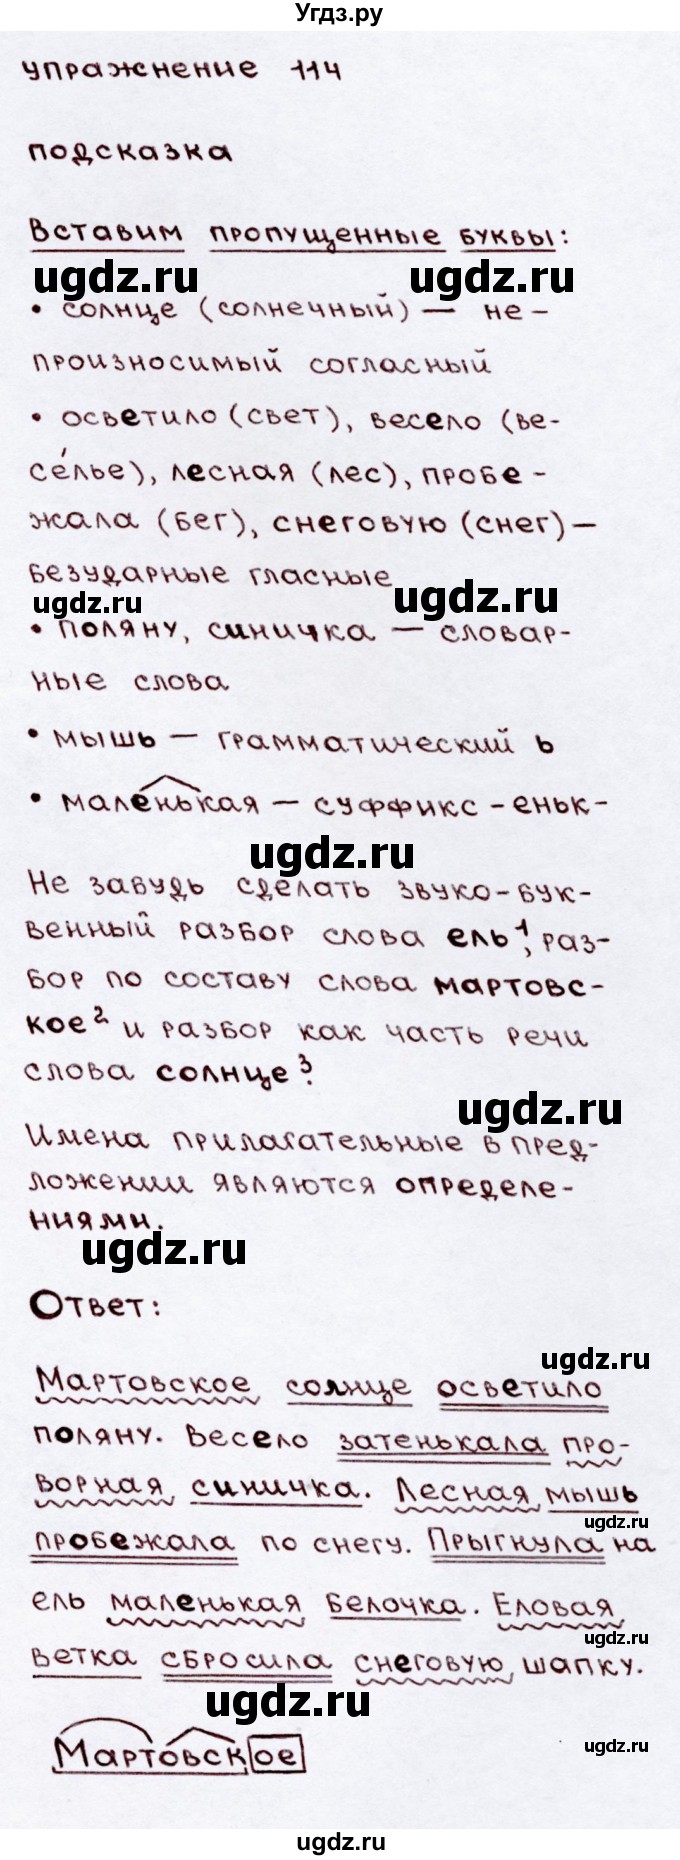 Угдз.ру
упражнение 114
подсказка
Вставим пропущенные буквы:
ugdz.ru ugdz.ru
• солнце (солнечный) — не-
произносимый согласный
• осветило (свет), весело (ве-
се́лье), лесная (лес), пробе-
жала (бег), снеговую (снег) —
безударные гласные
ugdz.ru ugdz.ru
• поляну, синичка — словар-
ные слова
• мышь — грамматический ь
• маленькая — суффикс -еньк-
ugdz.ru
Не забудь сделать звуко-бук-
венный разбор слова ель¹, раз-
бор по составу слова мартовс-
кое² и разбор как часть речи
слова солнце³.
ugdz.ru
Имена прилагательные в пред-
ложении являются определе-
ниями.
ugdz.ru
Ответ:
ugdz.ru
Мартовское солнце осветило
поляну. Весело затенькала про-
ворная синичка. Лесная мышь
ugdz.ru
пробежала по снегу. Прыгнула на
ель маленькая белочка. Еловая
ugdz.ru
ветка сбросила снеговую шапку.
ugdz.ru
Мартовское
ugdz.ru
ugdz.ru